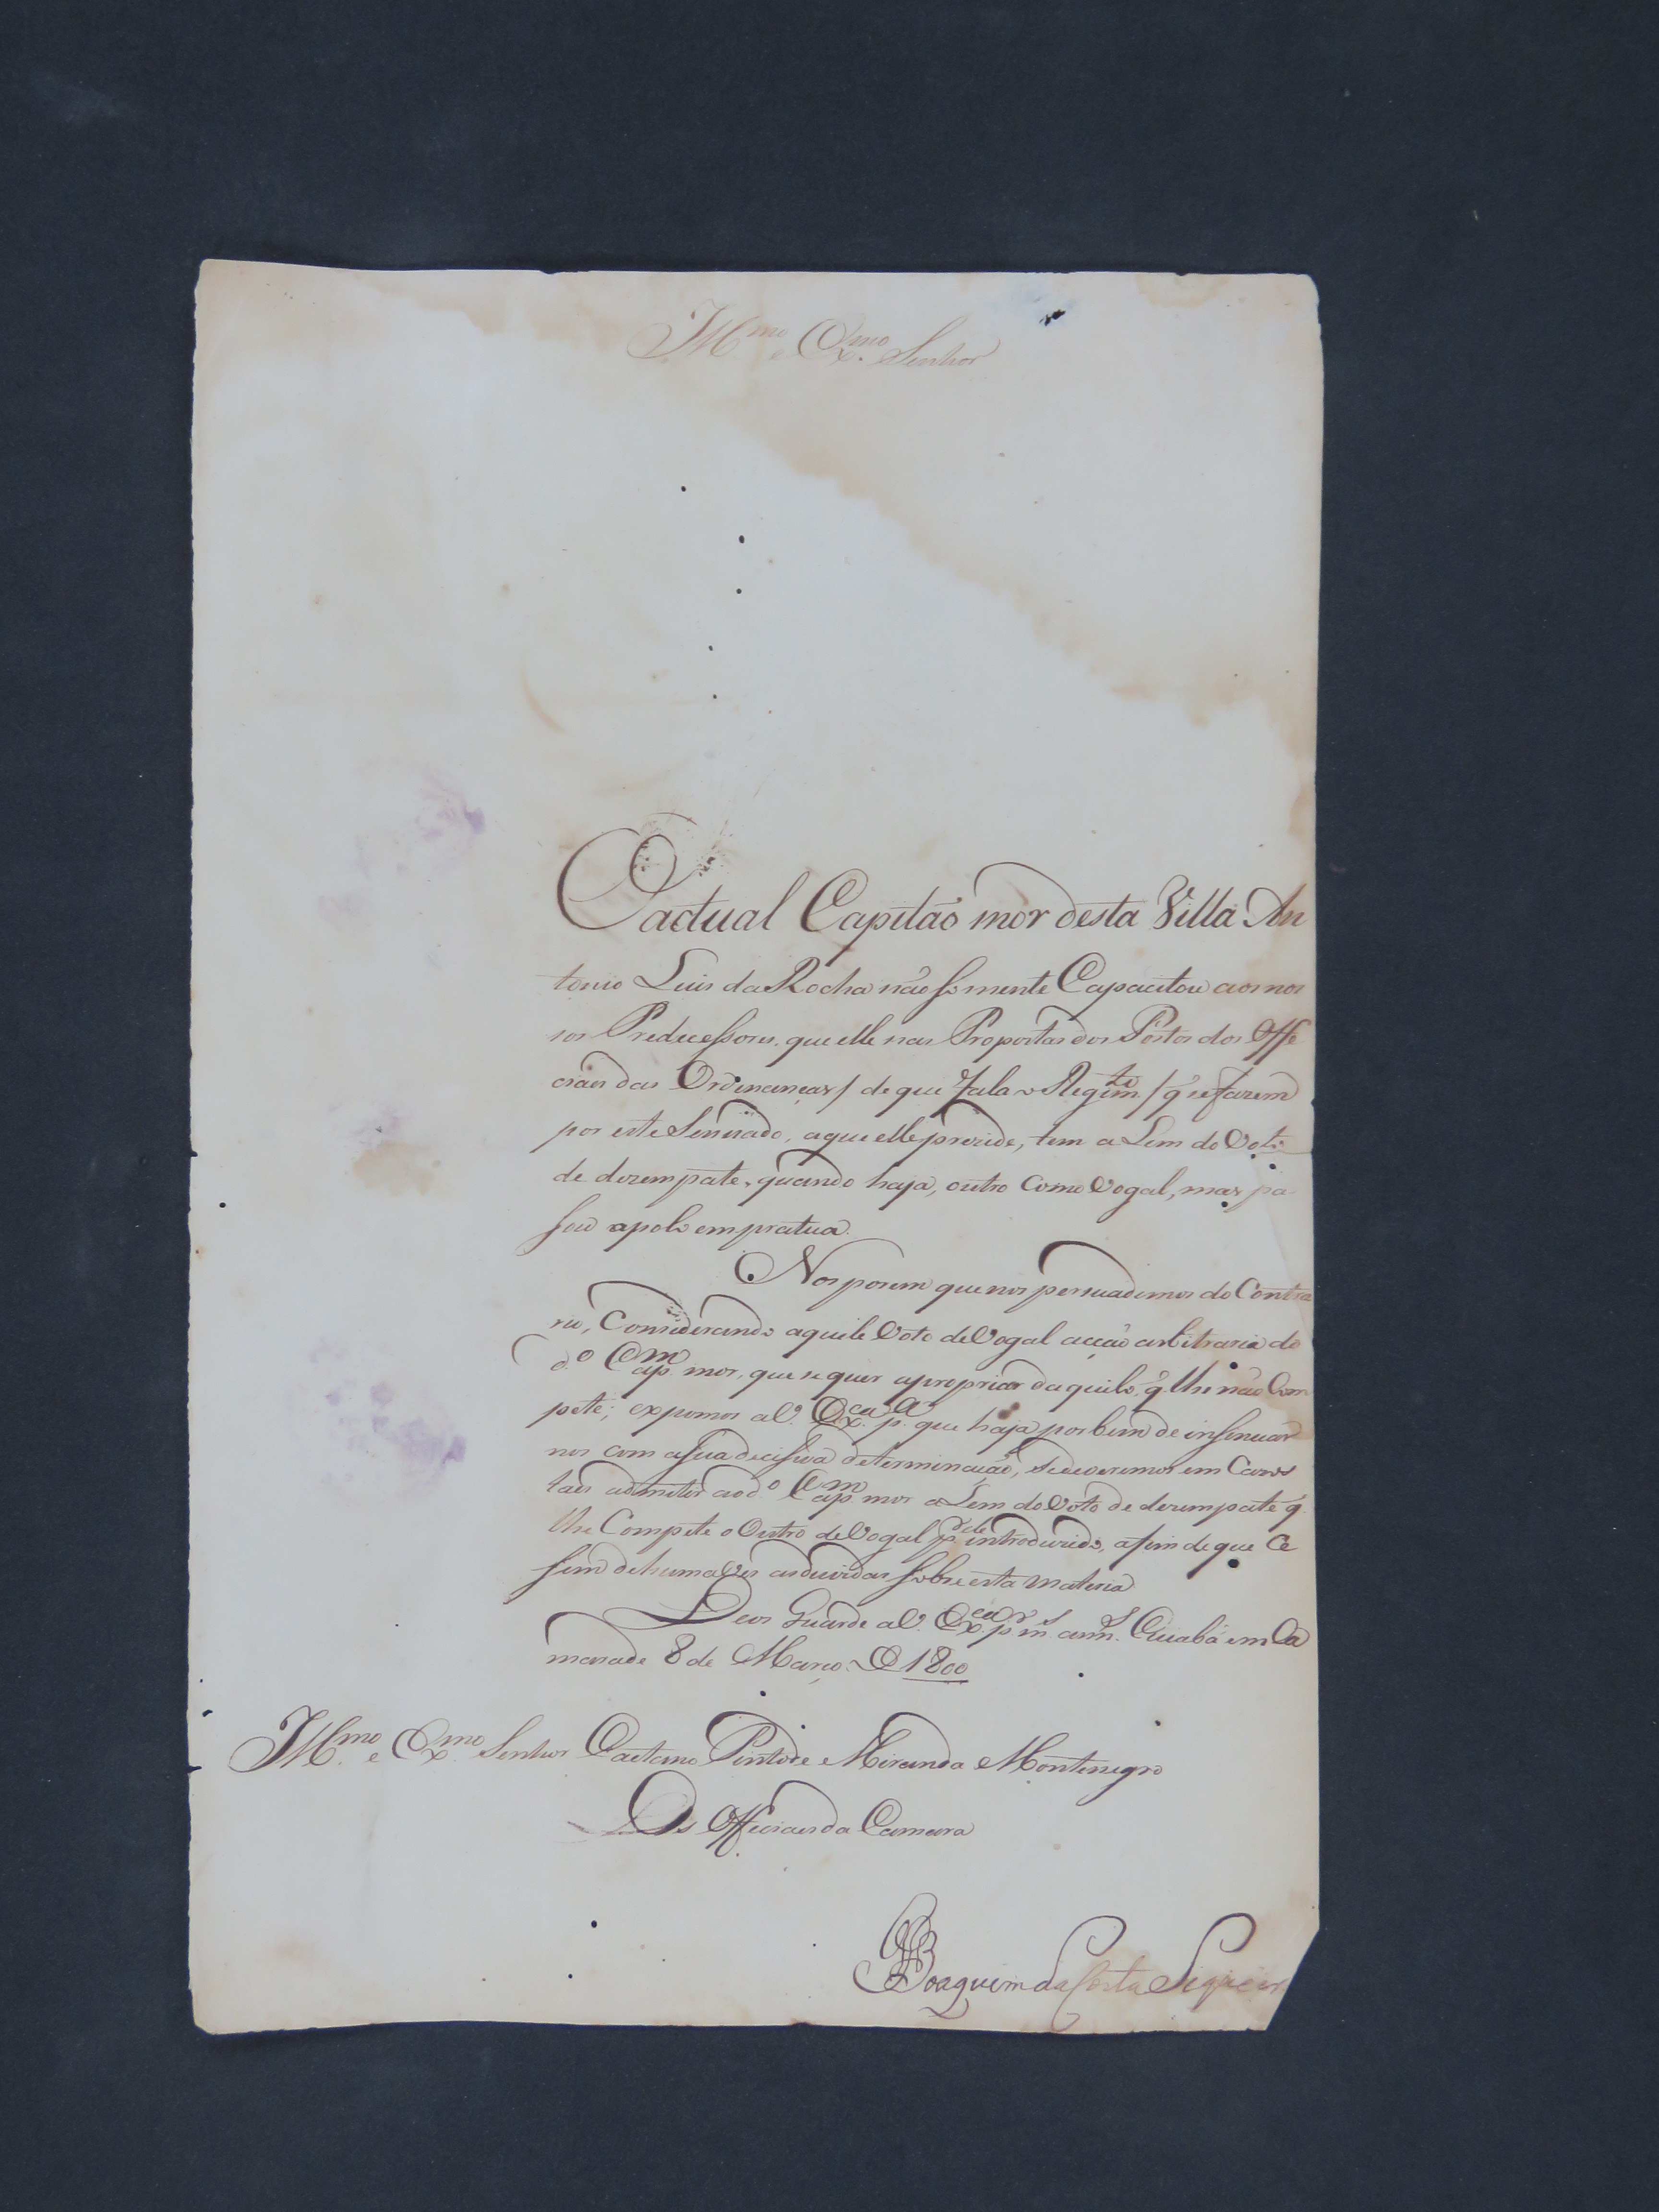 Ill.mo e Ex.mo Senhor
O actual Capitão mór desta Villa An
tonio Luis da Rocha não somente Capacitou aos nos
sos Predecessores, que elle nas Propostas dos Postos dos Offi
ciaes das Ordenanças / de que fala o Regim.to / q̃ se fazem
por este Senado, a que elle prezide, tem aLem do Voto
de dezempate, quando haja, outro Como Vogal, mas pa
sou apolo em pratica.
Nos porem que nos persuadimos do Contra
rio, Considerando aquele Voto de Vogal acção arbitraria do
d.o Cap.m mor, que se quer apropriar daquilo, q̃ lhe não Com
pete; expomos a V. Ex.ca p.a que haja por bem de insinuar
nos com a sua decisiva determinação, se deveremos em Cazos
taes admitir ao d.o Cap.m mor aLem do Voto de dezempate q̃
lhe Compete o Outro de Vogal introduzido, afim de que Ce
sem de huma Ves as duvidas sobre esta materia
Deos Guarde a V. Ex.ca p.r m.s ann.s Cuiabá em Ca
mara de 8 de Março D 1800
Ill.mo e Ex.mo Senhor Caetano Pinto de Miranda Montenegro
Os Officiaes da Camara
Joaquim da Costa Siqueir